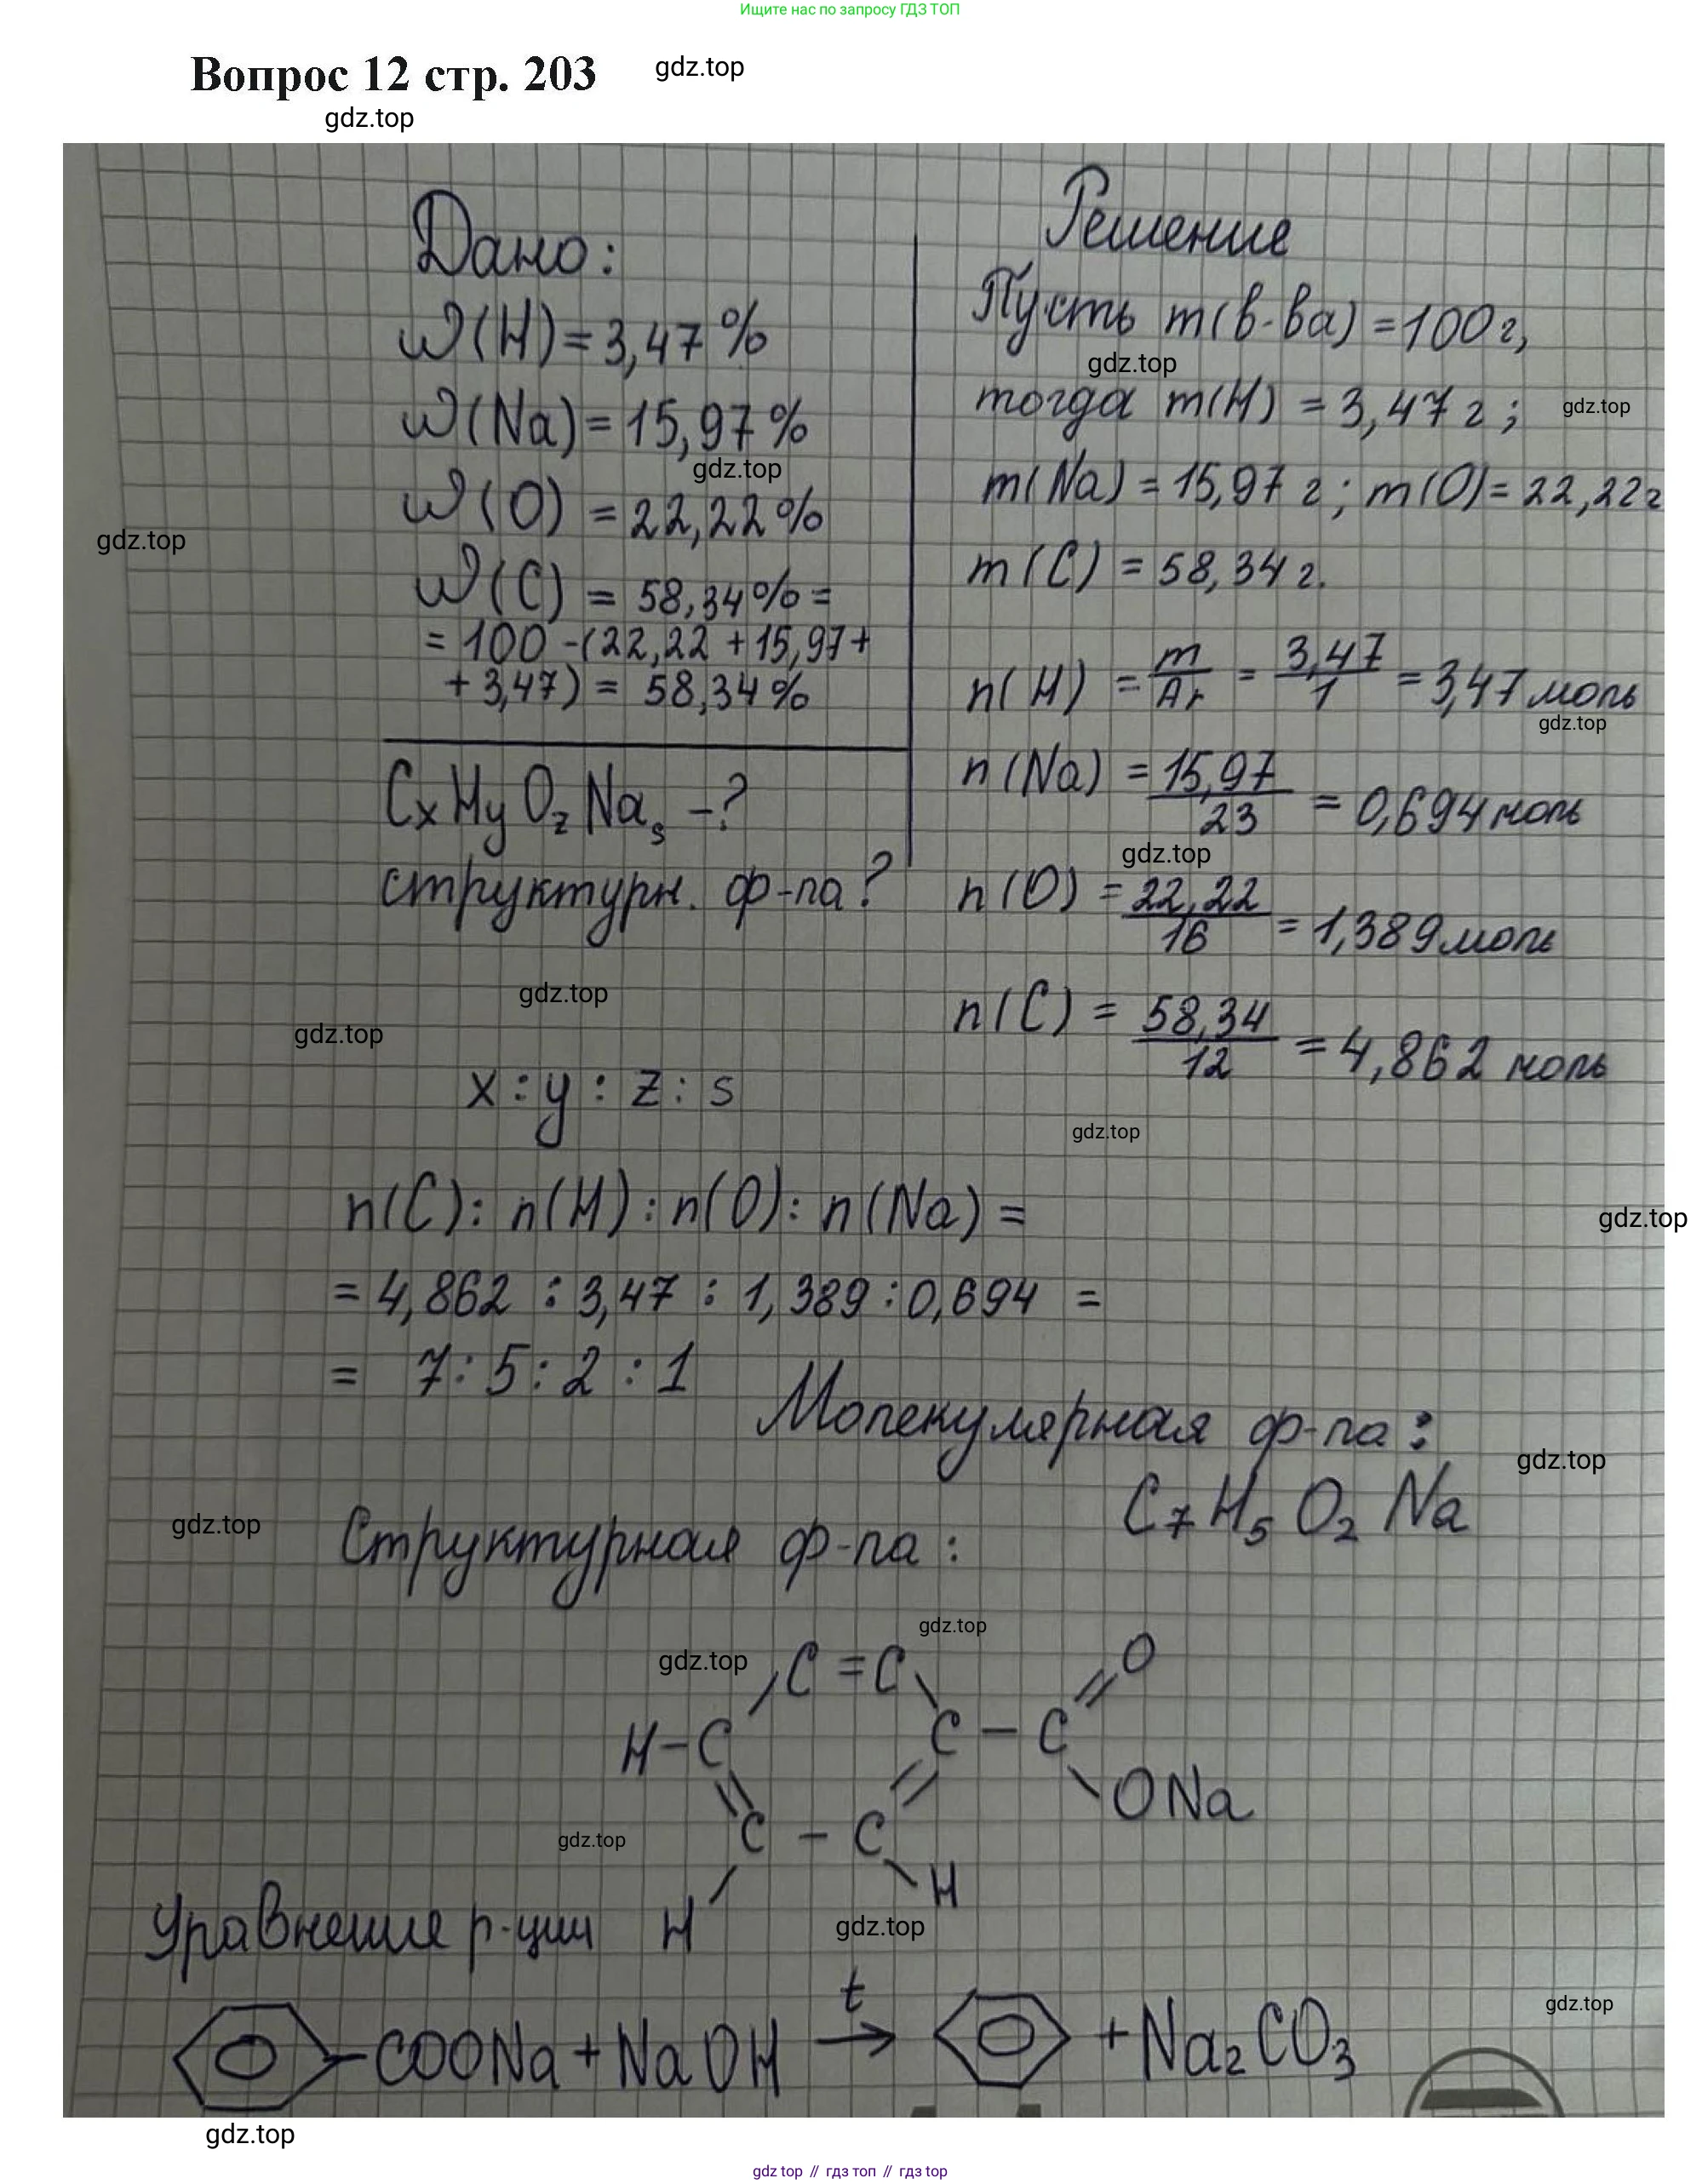 Ищите нас по запросу ГДЗ ТОП
Вопрос 12 стр. 203
gdz.top
gdz.top
Дано:
ω(H) = 3,47 %
ω(Na) = 15,97 %
gdz.top
ω(O) = 22,22 %
gdz.top
ω(C) = 58,34 % =
= 100 - (22,22 + 15,97 +
+ 3,47) = 58,34 %
CxHyOzNas - ?
структурн. ф-ла?
Решение
Пусть m(в-ва) = 100 г,
gdz.top
тогда m(H) = 3,47 г;
gdz.top
m(Na) = 15,97 г; m(O) = 22,22 г
m(C) = 58,34 г.
n(H) = m/Ar = 3,47/1 = 3,47 моль
gdz.top
n(Na) = 15,97/23 = 0,694 моль
gdz.top
n(O) = 22,22/16 = 1,389 моль
n(C) = 58,34/12 = 4,862 моль
gdz.top
gdz.top
gdz.top
x : y : z : s
n(C) : n(H) : n(O) : n(Na) =
gdz.top
= 4,862 : 3,47 : 1,389 : 0,694 =
= 7 : 5 : 2 : 1
Молекулярная ф-ла:
gdz.top
C7H5O2Na
gdz.top
Структурная ф-ла:
gdz.top
gdz.top
C = C O
H - C C - C
ONa
gdz.top
C - C
H H
gdz.top
Уравнение р-ции
t
gdz.top
- COONa + NaOH → + Na2CO3
gdz.top
gdz top // гдз топ // гдз top